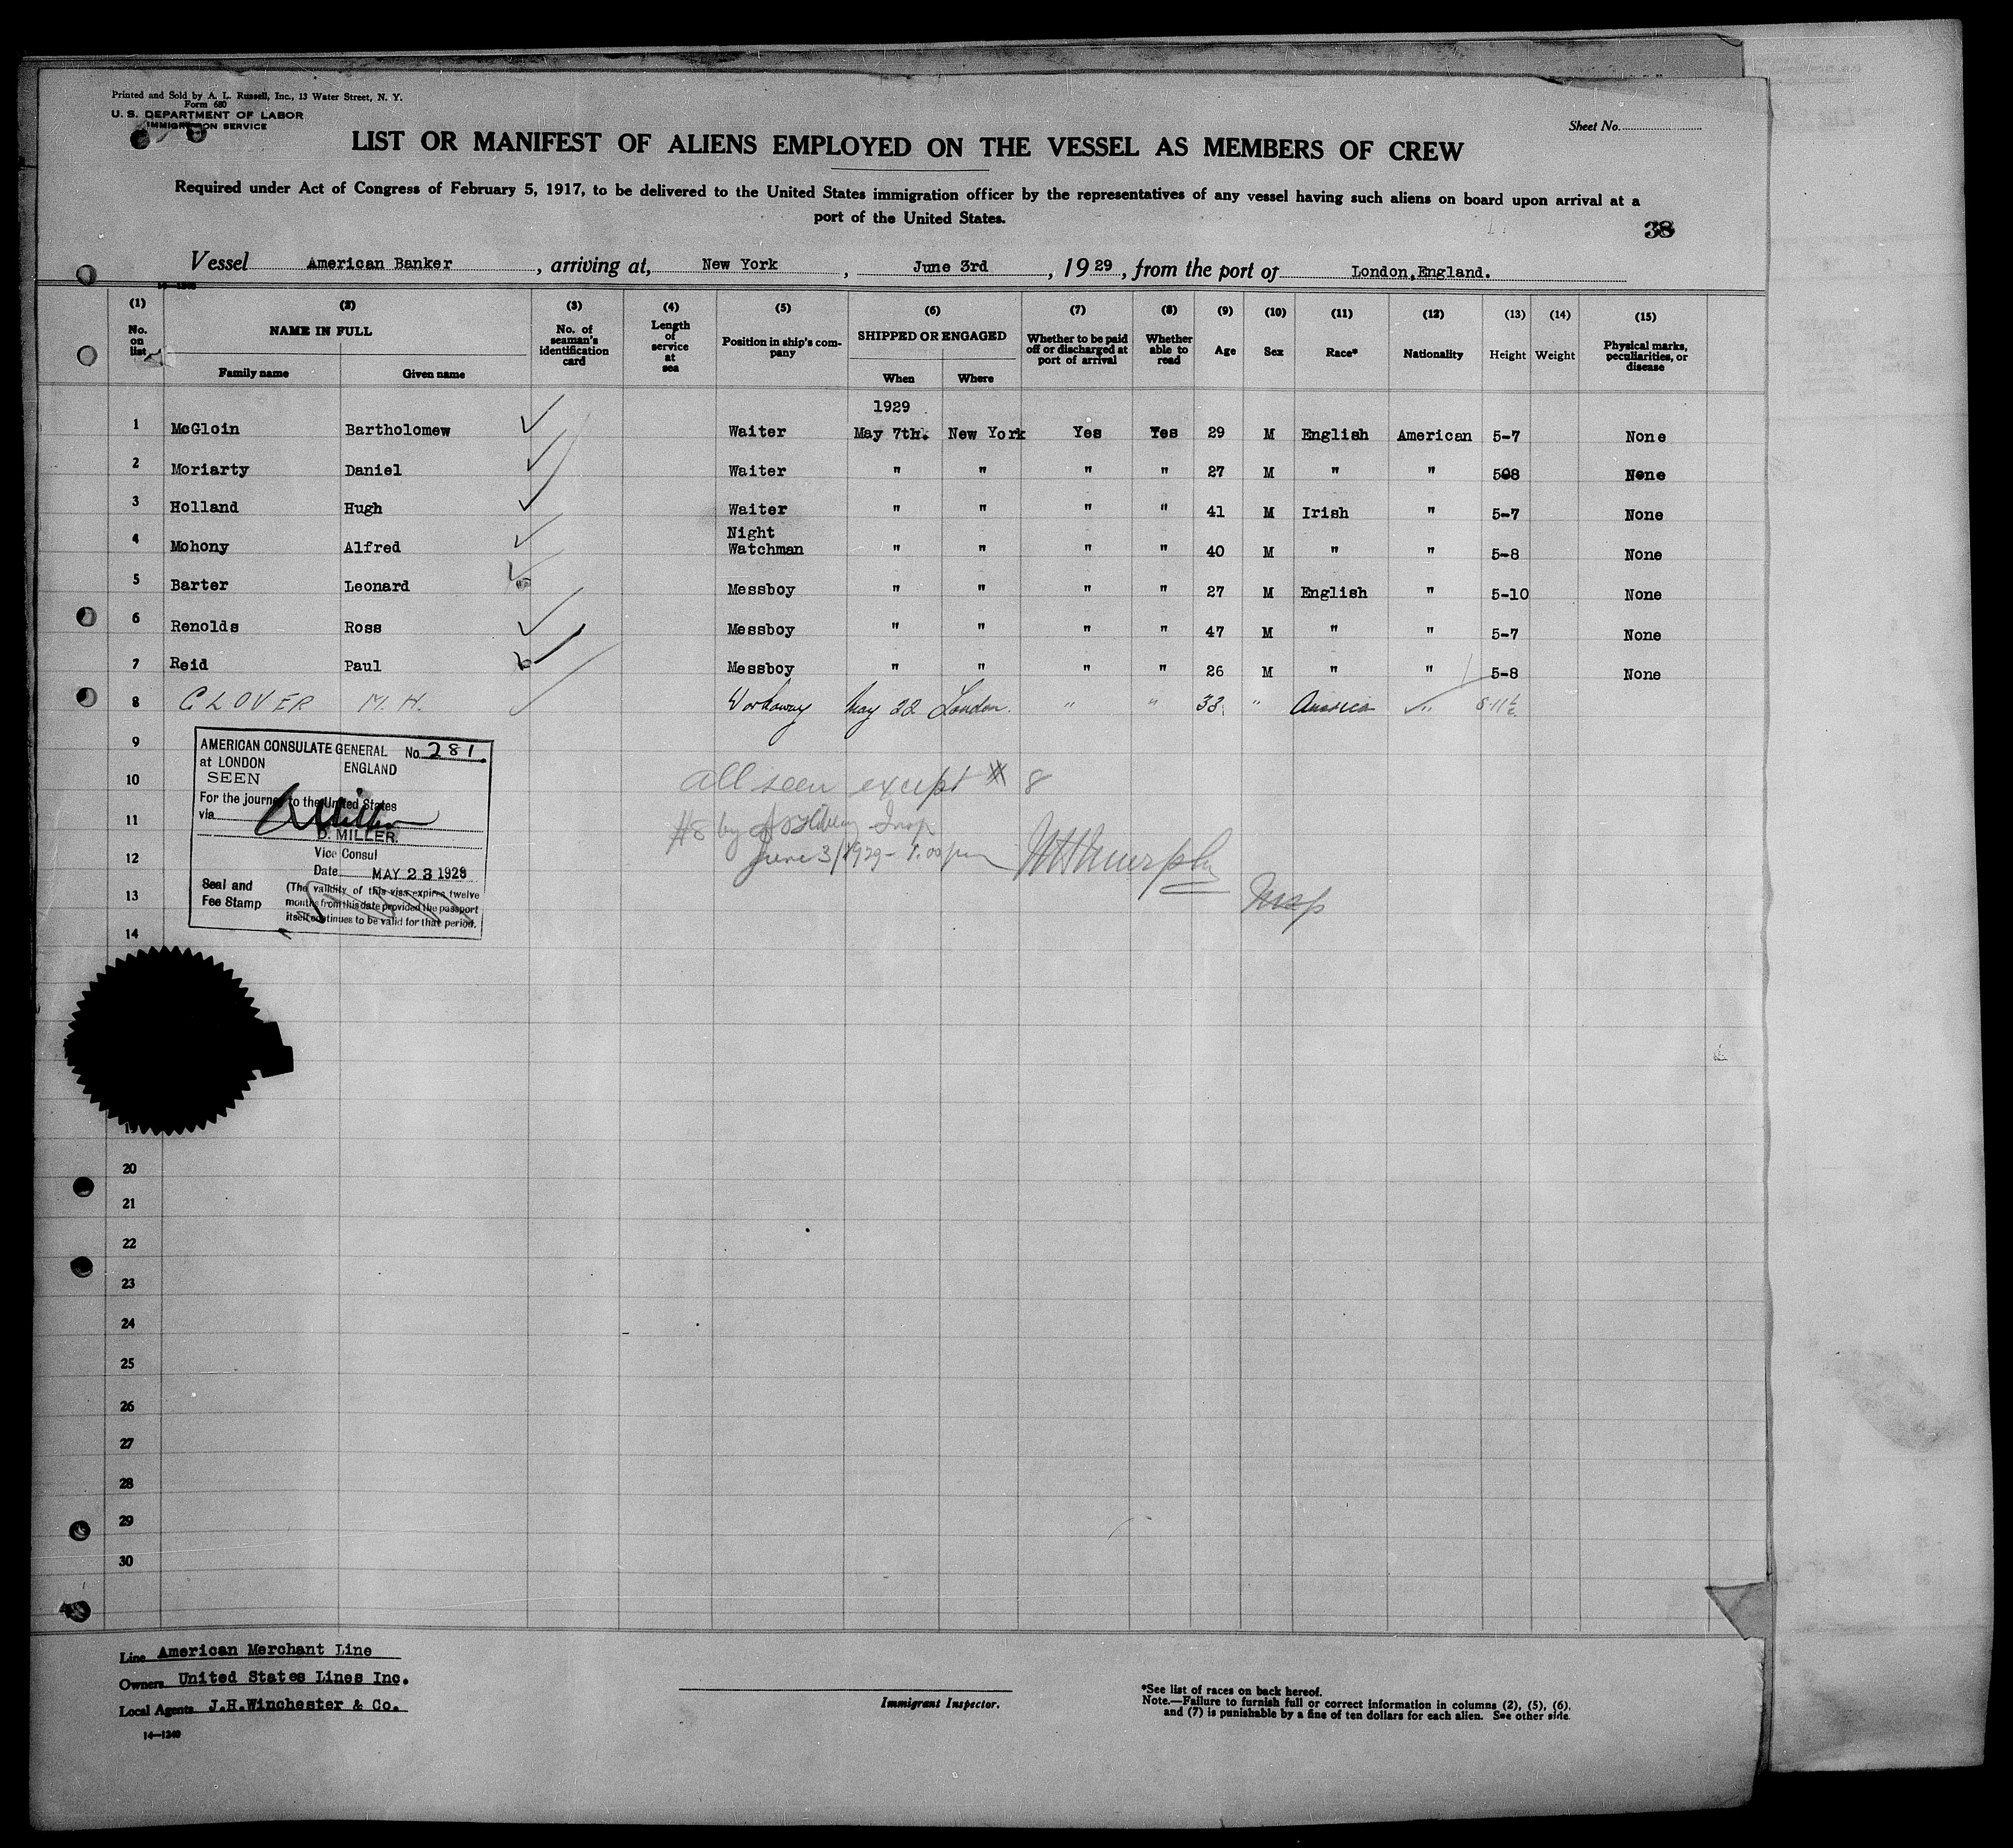 Printed and Sold by A. L. Russell, Inc., 13 Water Street, N. Y.
Form 680
U. S. DEPARTMENT OF LABOR
IMMIGRATION SERVICE
Sheet No.
LIST OR MANIFEST OF ALIENS EMPLOYED ON THE VESSEL AS MEMBERS OF CREW
Required under Act of Congress of February 5, 1917, to be delivered to the United States immigration officer by the representatives of any vessel having such aliens on board upon arrival at a
port of the United States.
38
Vessel American Banker, arriving at, New York, June 3rd, 1929, from the port of London, England.
(1) (2) (3) (4) (5) (6) (7) (8) (9) (10) (11) (12) (13) (14) (15)
No. on list NAME IN FULL Family name Given name No. of seaman's identification card Length of service at sea Position in ship's company SHIPPED OR ENGAGED When Where Whether to be paid off or discharged at port of arrival Whether able to read Age Sex Race* Nationality Height Weight Physical marks, peculiarities, or disease
1929
1 McGloin Bartholomew Waiter May 7th. New York Yes Yes 29 M English American 5-7 None
2 Moriarty Daniel Waiter " " " " 27 M " " 508 None
3 Holland Hugh Waiter " " " " 41 M Irish " 5-7 None
4 Mohony Alfred Night Watchman " " " " 40 M " " 5-8 None
5 Barter Leonard Messboy " " " " 27 M English " 5-10 None
6 Renolds Ross Messboy " " " " 47 M " " 5-7 None
7 Reid Paul Messboy " " " " 26 M " " 5-8 None
8 CLOVER M. H. Workaway May 22 London. " " 38 " America " 5-11½
9
AMERICAN CONSULATE GENERAL No. 281
at LONDON ENGLAND
SEEN
For the journey to the United States
via
D. MILLER.
Vice Consul
Date MAY 23 1929
Seal and Fee Stamp
(The validity of this visa expires twelve
months from this date provided the passport
itself continues to be valid for that period.
10 all seen except # 8
11 #8 by Insp
12 June 3/1929 - 1.00 pm WHMurphy
13 Insp
14
20
21
22
23
24
25
26
27
28
29
30
Line American Merchant Line
Owners United States Lines Inc.
Local Agents J.H.Winchester & Co.
14—1240
Immigrant Inspector.
*See list of races on back hereof.
Note.—Failure to furnish full or correct information in columns (2), (5), (6),
and (7) is punishable by a fine of ten dollars for each alien. See other side.